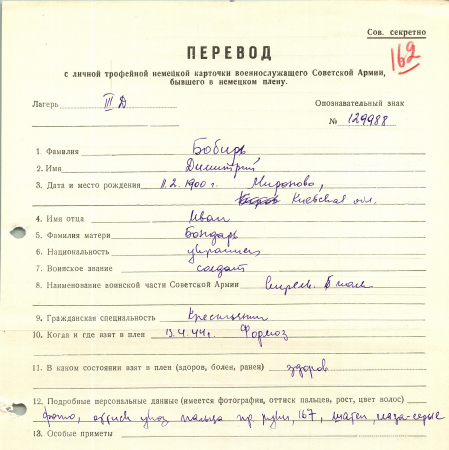 Сов. секретно
162
ПЕРЕВОД
с личной трофейной немецкой карточки военнослужащего Советской Армии,
бывшего в немецком плену.
Лагерь III Д Опознавательный знак
№ 129988
1. Фамилия Бобирь
2. Имя Димитрий
3. Дата и место рождения 11.2.1900 г. Мироново,
Киевская обл.
4. Имя отца Иван
5. Фамилия матери Бондарь
6. Национальность украинец
7. Воинское звание солдат
8. Наименование воинской части Советской Армии
9. Гражданская специальность Крестьянин
10. Когда и где взят в плен 13.4.44г.
11. В каком состоянии взят в плен (здоров, болен, ранен) здоров
12. Подробные персональные данные (имеется фотография, оттиск пальцев, рост, цвет волос)
фото, оттиск указ. пальца пр. руки, 167, шатен, глаза-серые
13. Особые приметы